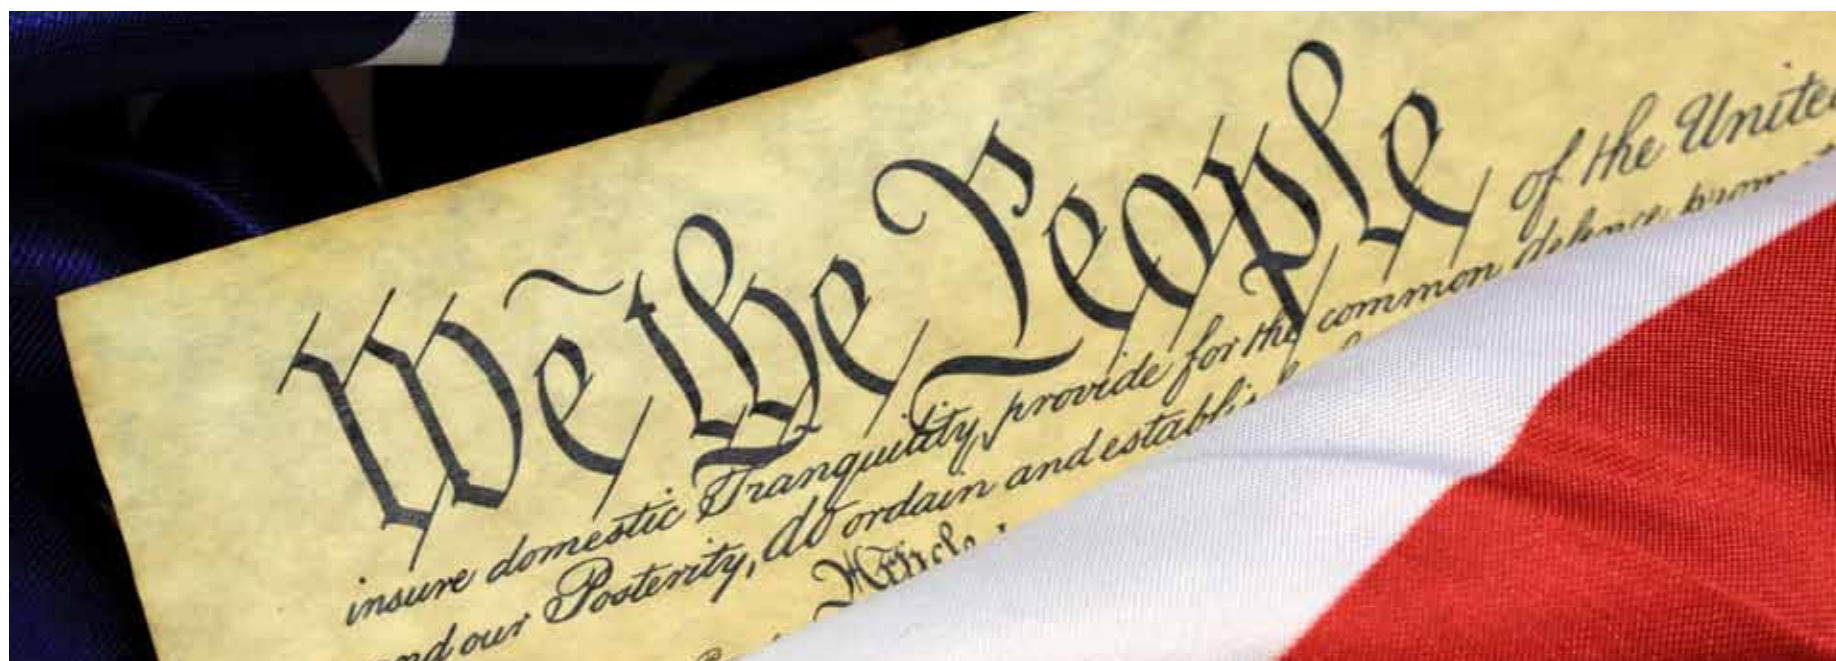 We the People of the United
insure domestic Tranquility, provide for the common defence, prom
and our Posterity, do ordain and establish
Article